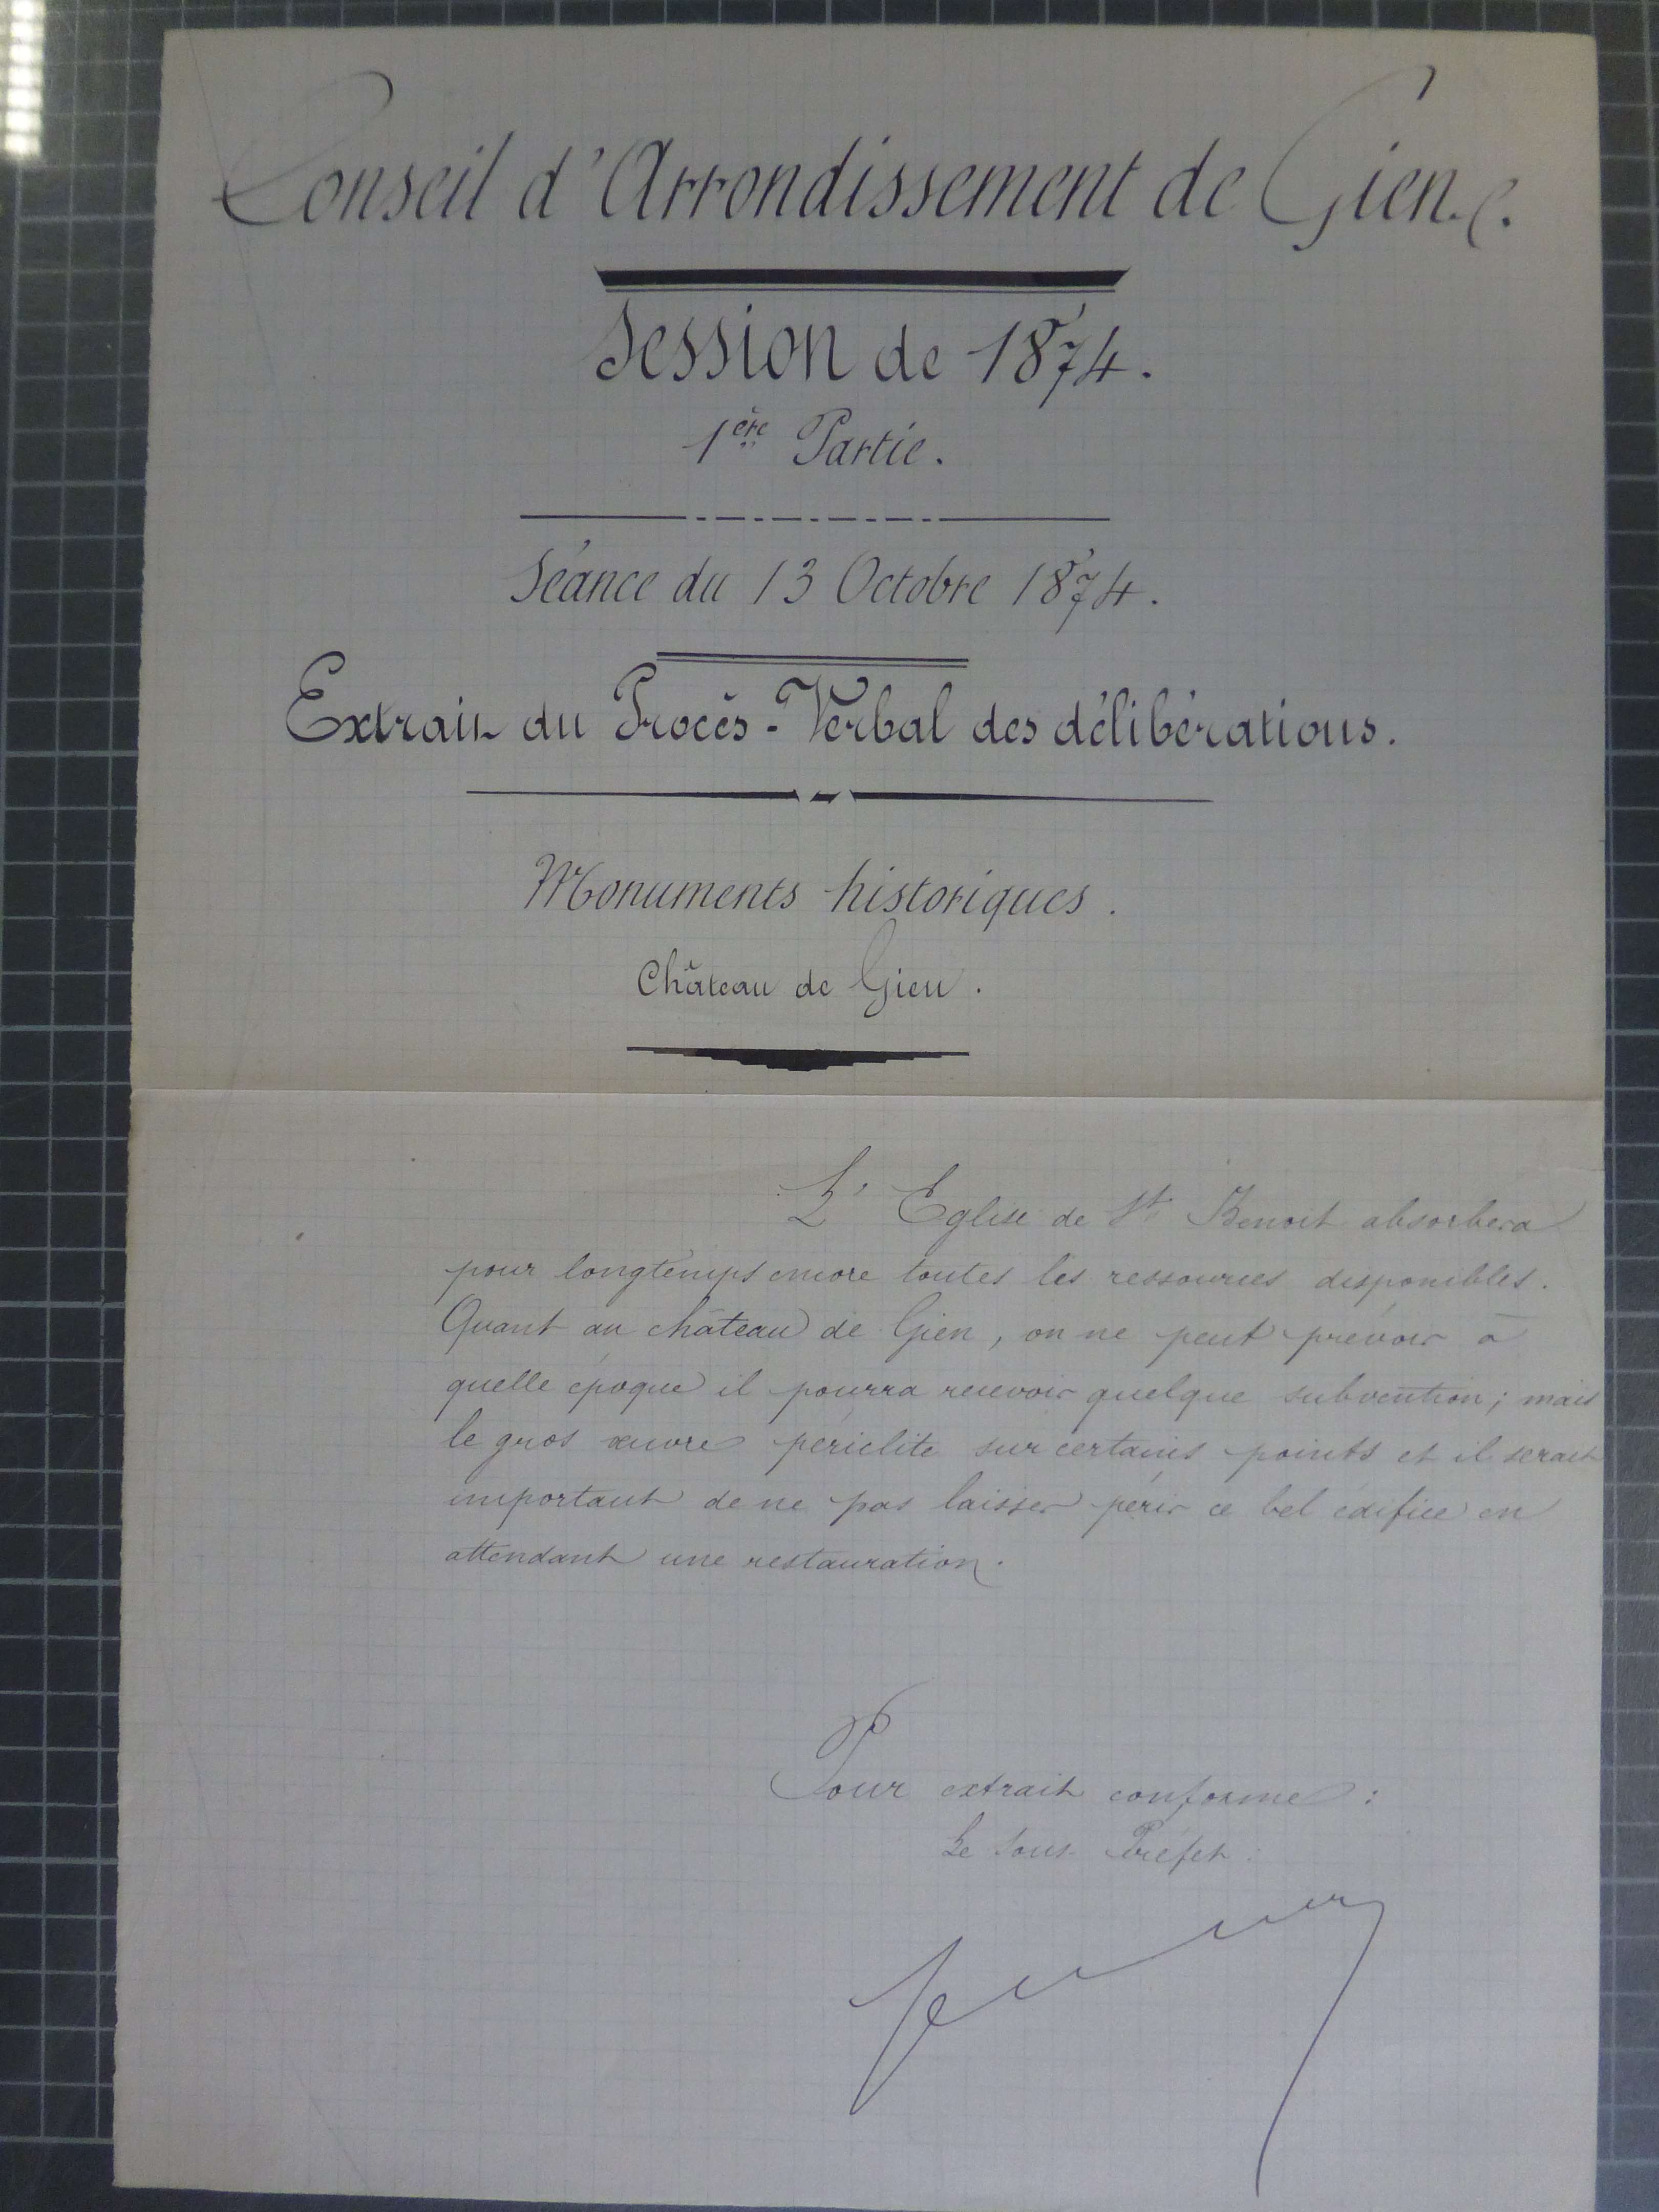 Conseil d'Arrondissement de Gien.
Session de 1874.
1ère Partie.
Séance du 13 Octobre 1874.
Extrait du Procès-Verbal des délibérations.
Monuments historiques.
Château de Gien.
L'Eglise de St Benoit absorbera
pour longtemps encore toutes les ressources disponibles.
Quant au château de Gien, on ne peut prévoir à
quelle époque il pourra recevoir quelque subvention; mais
le gros œuvre périclite sur certains points et il serait
important de ne pas laisser périr ce bel édifice en
attendant une restauration.
Pour extrait conforme :
Le Sous-Préfet :